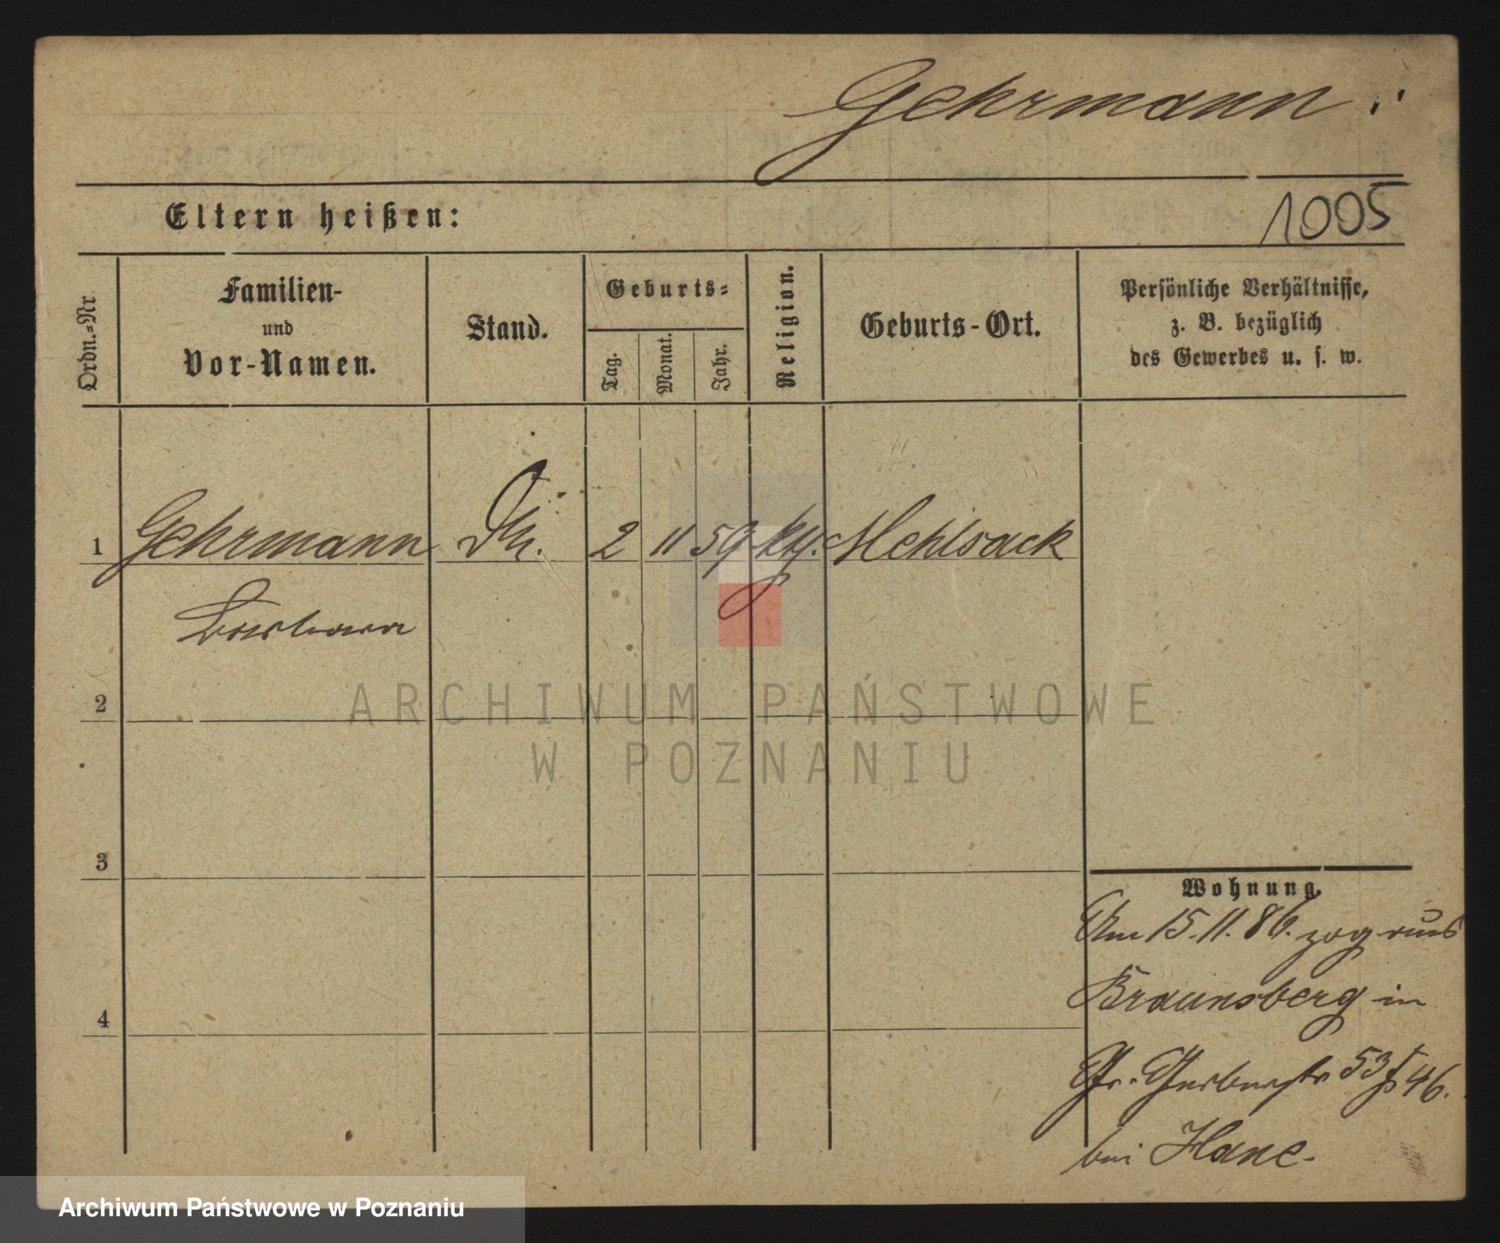 Gehrmann
Eltern heißen:
1005
Ordn.=Nr
Familien-
und
Vor-Namen.
Stand.
Geburts=
Tag.
Monat.
Jahr.
Religion.
Geburts-Ort.
Persönliche Verhältnisse,
z. B. bezüglich
des Gewerbes u. s. w.
1 Gehrmann 2 11 59 Mehlsack
Barbara
2
ARCHIWUM PAŃSTWOWE
W POZNANIU
3
4
Wohnung.
Am 15.11.86. zog aus
Braunsberg in
Gr. Gerberstr 53 46.
bei Hane.
Archiwum Państwowe w Poznaniu